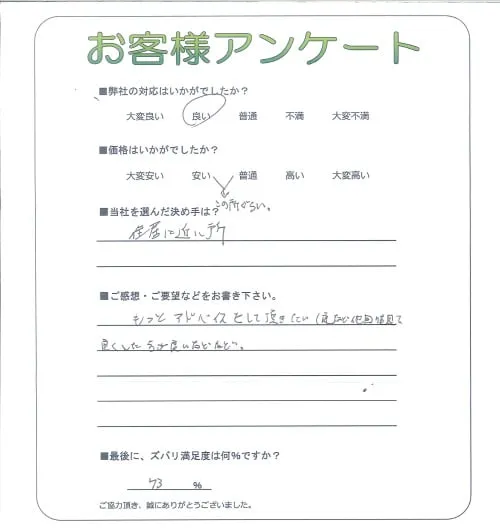 お客様アンケート
■弊社の対応はいかがでしたか？
大変良い 良い 普通 不満 大変不満
■価格はいかがでしたか？
大変安い 安い 普通 高い 大変高い
この所ぐらい。
■当社を選んだ決め手は？
に近い所
■ご感想・ご要望などをお書き下さい。
もっとアドバイスとして頂きたい
良くした方が良いなどなど。
■最後に、ズバリ満足度は何％ですか？
93 ％
ご協力頂き、誠にありがとうございました。